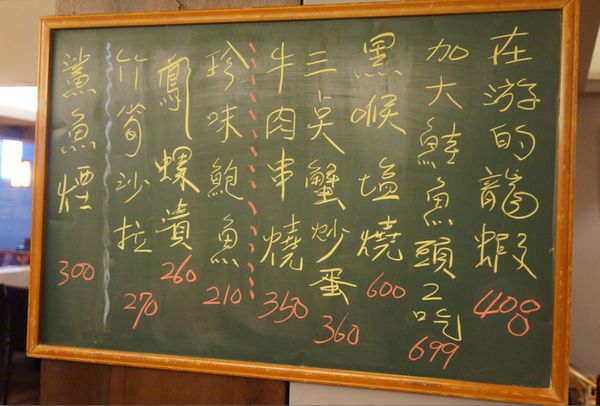 在游的龍蝦
400
加大鮭魚頭2吃
699
黑喉塩燒
600
三点蟹炒蛋
360
牛肉串燒
350
珍味鮑魚
210
鳳螺漬
260
竹筍沙拉
270
鯊魚煙
300